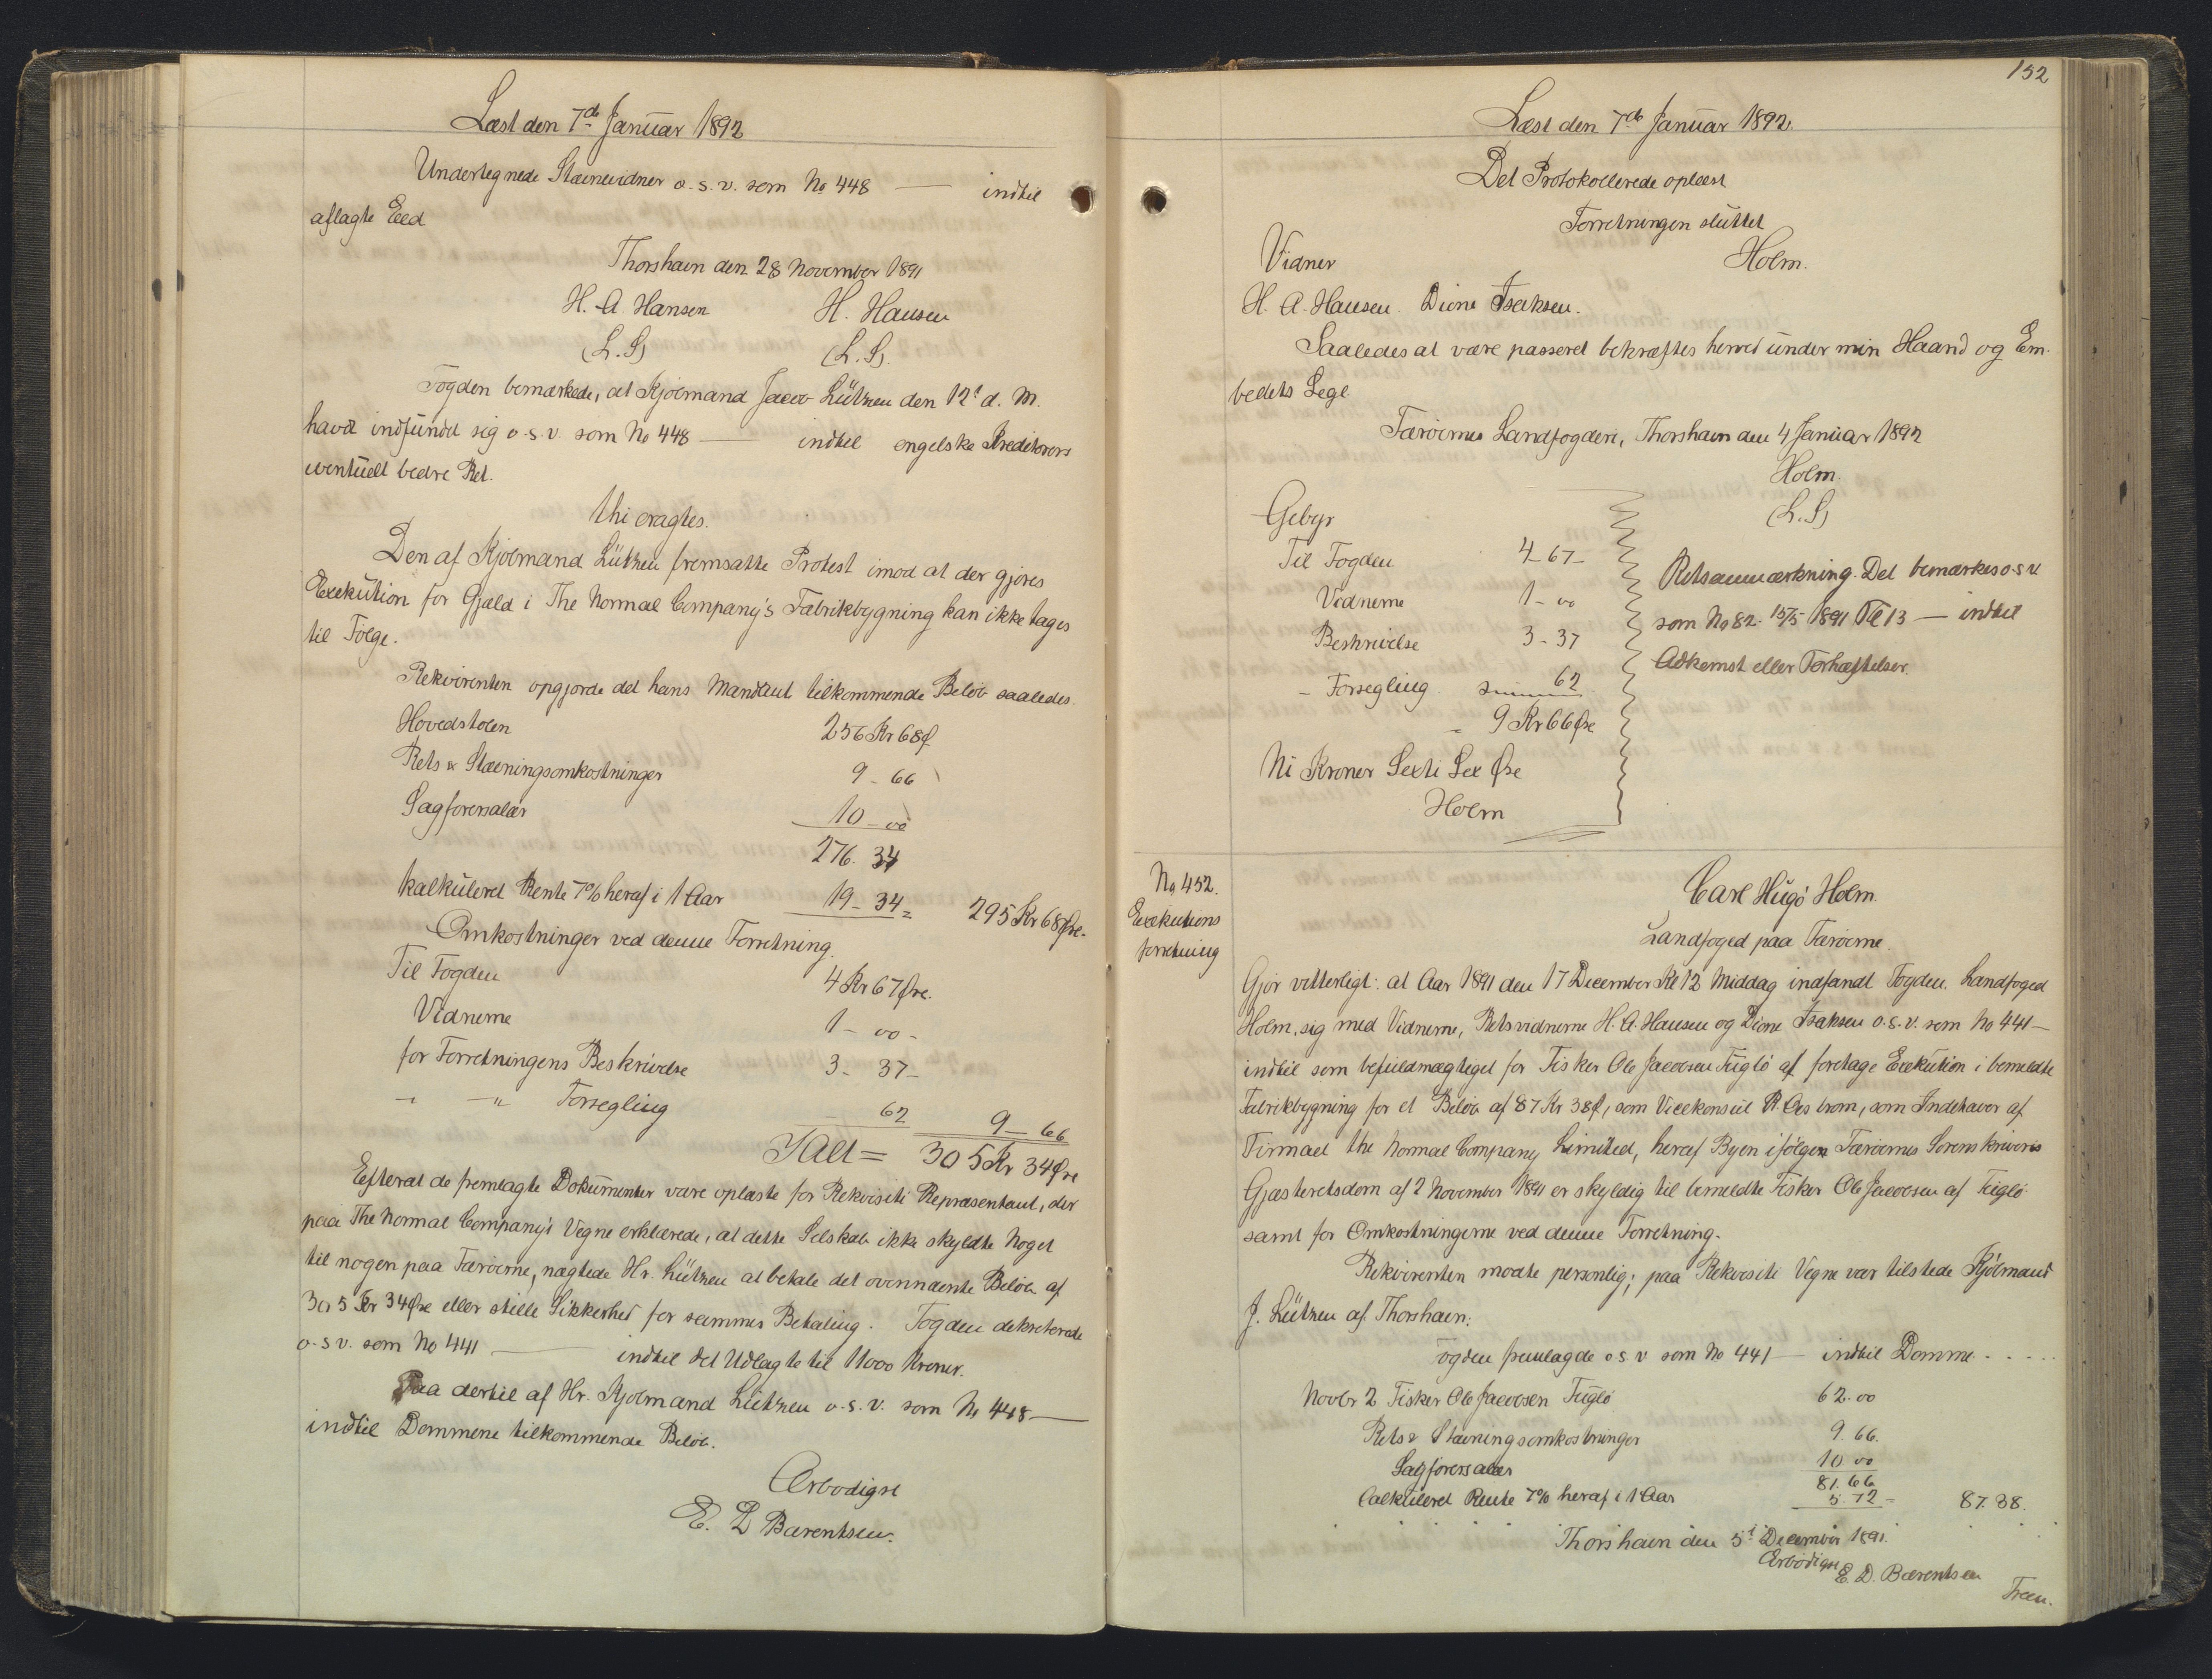 Læst den 7de Januar 1892
Undertegnede Stævnevidner o.s.v. som No 448 — indtil
aflagte Eed
Thorshavn den 28 November 1891
H. A. Hansen H. Hansen
(L.S) (L.S).
Fogden bemærkede, at Kjøbmand Jacob Lützen den 12t d. M.
havde indfundet sig o.s.v. som No 448 — indtil engelske Kreditorers
eventuelt bedre Ret.
thi eragtes.
Den af Kjøbmand Lützen fremsatte Protest imod at der gjøres
Exekution for Gjæld i The Normal Company's Fabrikbygning kan ikke tages
til Følge.
Rekvirenten opgjorde det hans Mandant tilkommende Beløb saaledes.
Hovedstolen 256 Kr 68 Ø
Rets & Stævningsomkostninger 9 - 66
Sagførersalær 10 - 00
276. 34
Kalkuleret Rente 7% heraf i 1 Aar 19 - 34 = 295 Kr 68 Øre.
Omkostninger ved denne Forretning.
Til Fogden 4 Kr 67 Øre.
Vidnerne 1 - 00 -
for Forretningens Beskrivelse 3 - 37 -
- - " Forsegling 62 9 - 66
I Alt = 305 Kr 34 Øre
Efterat de fremlagte Dokumenter vare oplæste for Rekvisiti Repræsentant, der
paa The Normal Company's Vegne erklærede, at dette Selskab ikke skyldte Noget
til nogen paa Færøerne, nægtede Hr. Lützen at betale det ovennævnte Beløb af
305 Kr 34 Øre eller stille Sikkerhed for sammes Betaling. Fogden dekreterede
o.s.v. som No 441 — indtil det Udlagte til 11000 Kroner.
Paa dertil af Hr. Kjøbmand Lützen o.s.v. som No 448 —
indtil Dommene tilkommende Beløb.
Ærbødigst
E. D Bærentsen.
152
Læst den 7de Januar 1892.
Det Protokollerede oplæst
Forretningen sluttet
Vidner Holm.
H. A. Hansen. Dione Isaksen.
Saaledes at være passeret bekræftes herved under min Haand og Em-
bedets Segl
Færøernes Landfogderi, Thorshavn den 4 Januar 1892
Holm.
(L.S)
Gebyr
Til Fogden 4 - 67 -
Vidnerne 1 - 00
Beskrivelse 3 - 37
- Forsegling 62
= 9 Kr 66 Øre
Ni Kroner Sexti Sex Øre
Holm
Retsanmærkning. Det bemærkes o.s.v.
som No 82. 15/5 1891 13 — indtil
Adkomst eller Forhæftelser.
No 452.
Exekutions
forretning
Carl Hugo Holm.
Landfoged paa Færøerne.
Gjør vitterligt: at Aar 1891 den 17 December Kl 12 Middag indfandt Fogden, Landfoged
Holm, sig med Vidnerne, Retsvidnerne H. A. Hansen og Dione Isaksen o.s.v. som No 441 —
indtil som befuldmægtiget for Fisker Ole Jacobsen Fuglø at foretage Exekution i bemeldte
Fabrikbygning for et Beløb af 87 Kr 38 Ø, som Vicekonsul R. Oestrom, som Indehaver af
Firmaet the Normal Company Limited, heraf Byen ifølge Færøernes Sorenskriveris
Gjæsteretsdom af 2 November 1891 er skyldig til bemeldte Fisker Ole Jacobsen af Fuglø
samt for Omkostningerne ved denne Forretning.
Rekvirenten mødte personlig; paa Rekvisiti Vegne var tilstede Kjøbmand
J. Lützen af Thorshavn.
ogden fremlagde o s v som No 441 — indtil Domme.....
Novbr 2 Fisker Ole Jacobsen Fuglø 62.00
Rets & Stævningsomkostninger 9.66.
Sagførersalær 10 00
81.66
Calkuleret Rente 7% heraf i 1 Aar 5.72 = 87.38.
Thorshavn den 5t December 1891.
Ærbødigst
E. D. Bærentsen
Frem.